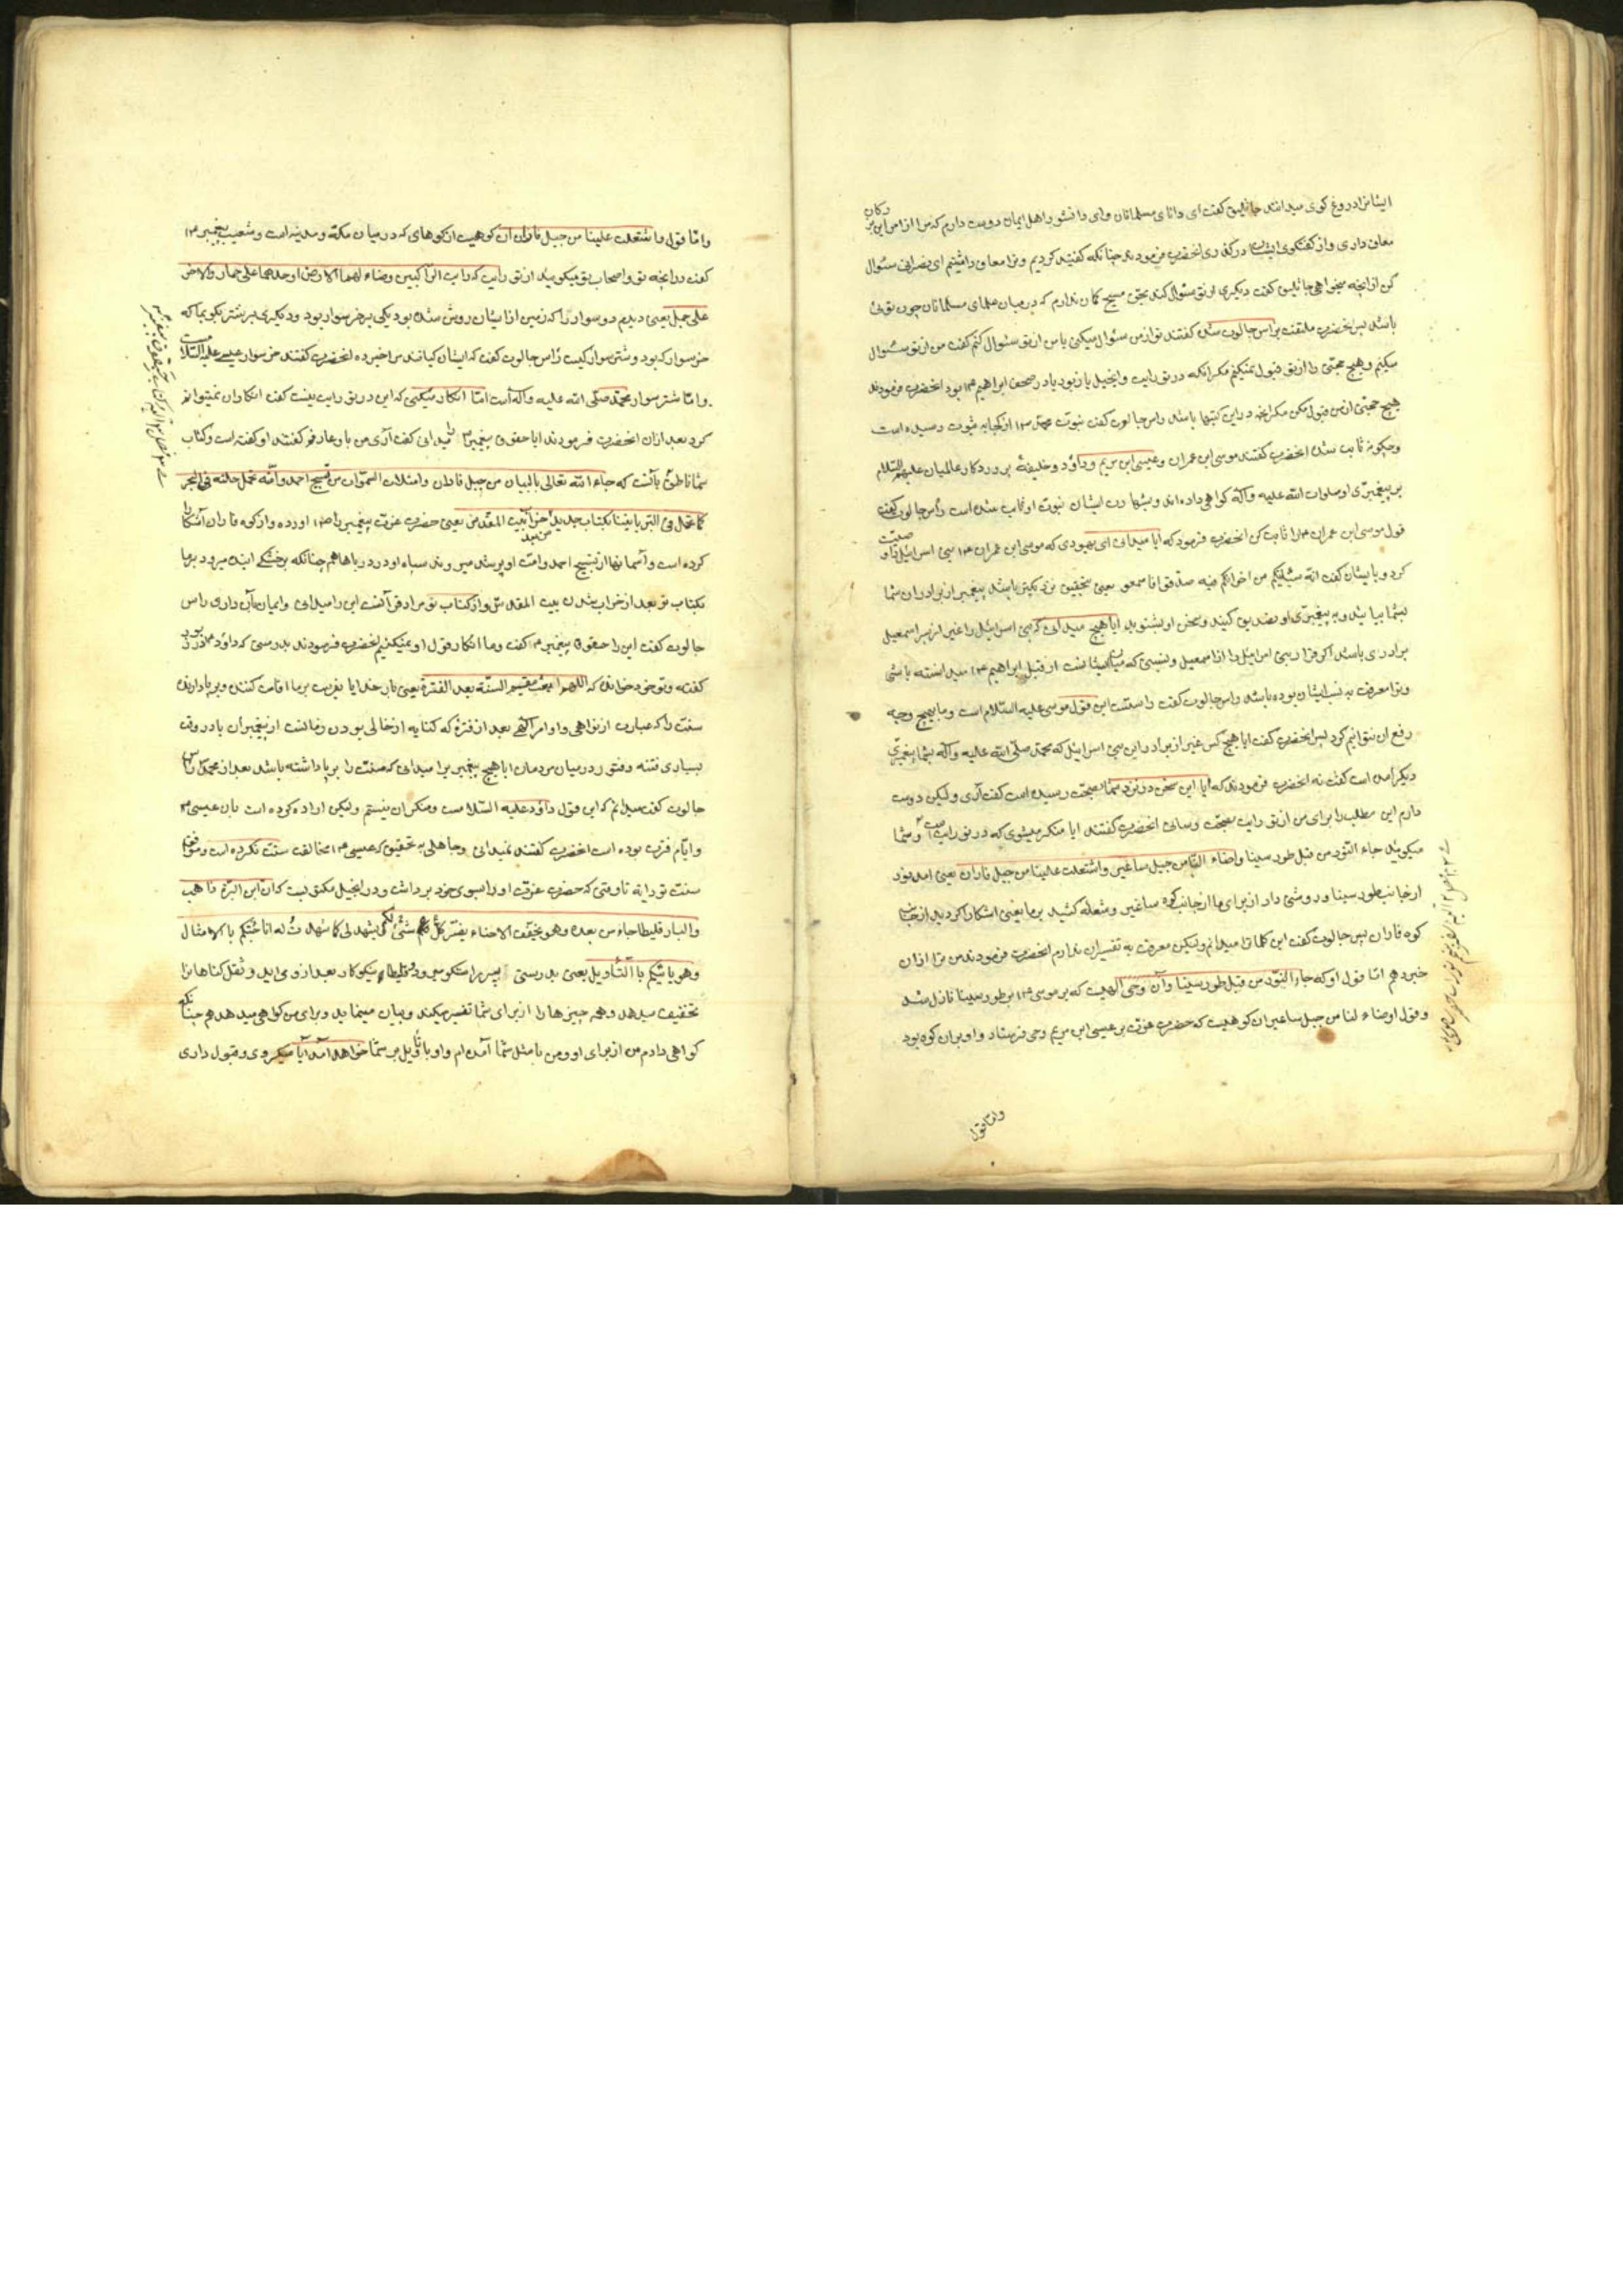 ایشانرا دروغ کوی میدانند جاثلیق کفت ای دانای مسلمانان وای دانشور اهل ایمان دوست دارم که مرا از امر این
معاف داری و از کفتکوی ایشان درکذری انحضرت فرمودند چنانکه کفتید کردیم و ترا معاف داشتیم ای نصرانی سئوال
کن از انچه میخواهی جاثلیق کفت دیکری از تو سئوال کند بحق مسیح کمان ندارم که در میان علمای مسلمانان چون توئی
باشد پس انحضرت ملتفت براس جالوت شده کفتند تو از من سئوال میکنی یا من از تو سئوال کنم کفت من از تو سئوال
میکنم و هیچ حجتی را از تو قبول نمیکنم مکر انکه در توریت و انجیل یا زبور یا در صحف ابراهیم ع بود انحضرت فرمودند
هیچ حجتی از من قبول مکن مکر انچه در این کتبها باشد راس جالوت کفت نبوت محمد ص از کجا به ثبوت رسیده است
و چکونه ثابت شده انحضرت کفتند موسی ابن عمران و عیسی ابن مریم و داؤد و خلیفهٔ پروردکار عالمیان علیهم السّلام
بر پیغمبری او صلوات الله علیه وآله کواهی داده اند و بشهادت ایشان نبوت او ثابت شده است راس جالوت کفت
قول موسی ابن عمران ع را ثابت کن انحضرت فرمود که ایا میدانی ای یهودی که موسی ابن عمران ع بنی اسرائیل را وصیت
کرد و بایشان کفت انّه سیاتیکم من اخوانکم فبه صدقوا فاسمعوا یعنی بتحقیق نزدیک باشد پیغمبر از برادران شما
بشما بیاید و به پیغمبری او تصدیق کنید و سخن او بشنوید ایا هیچ میدانی که بنی اسرائیل را غیر از پسر اسمعیل
برادری باشد اکر قرار بنی اسرائیل را از اسمعیل و نسبتی که میان ایشانست از قبل ابراهیم ع میدانسته باشی
و ترا معرفت به نسب ایشان بوده باشد راس جالوت کفت راستست این قول موسی علیه السّلام است و ما بهیچ وجه
رفع ان نتوانیم کرد پس انحضرت کفت ایا هیچ کس غیر از برادر این بنی اسرائیل که محمد صلّی الله علیه وآله بشما پیغمبری
دیکر آمده است کفت نه انحضرت فرمودند که آیا این سخن در نزد شما بصحت رسیده است کفت آری و لیکن دوست
دارم این مطلب را برای من از توریت بصحت رسانی انحضرت کفتند ایا منکر میشوی که در توریت است و شما
میکویید جاء النّور من قبل طور سینا واضاء لنا من جبل ساغیر واشتعلت علینا من جبل فاران یعنی امد نور
از جانب طور سینا و روشنی داد از برای ما از جانب کوه ساغیر و شعله کشید بر ما یعنی اشکارا کردید از جانب
کوه فاران پس جالوت کفت این کلمات را میدانم و لیکن معرفت به تفسیر ان ندارم انحضرت فرمودند من ترا از ان
خبر دهم امّا قول او که جاء النّور من قبل طور سینا وآن وحی الهیست که بر موسی ع بر طور سینا نازل شد
و قول او ضاء لنا من جبل ساعیر ان کوهیست که حضرت عزت بر عیسی ابن مریم وحی فرستاد و او بر ان کوه بود
وامّا قول
وامّا قول واشتعلت علینا من جبل فاران ان کوهیست از کوهای که در میان مکه و مدینه است و شعیب پیغمبر ع
کفت در انچه تو و اصحاب تو میکویید از توریت که رایت الراکبین وضاء لهما الارض احدهما علی حمار والاخر
علی جمل یعنی دیدم دو سوار را که زمین از ایشان روشن شده بود یکی بر خر سوار بود و دیکری بر شتر بکو بما که
خر سوار که بود و شتر سوار کیست راس جالوت کفت که ایشان کیانند مرا خبر ده انحضرت کفتند خر سوار عیسی علیه السّلام است
و امّا شتر سوار محمّد صلّی الله علیه وآله است امّا انکار میکنی که این در توریت نیست کفت انکار ان نمیتوانم
کرد بعد از ان انحضرت فرمودند ایا حقوق پیغمبر ع را میدانی کفت آری من باو عارفم کفتند او کفته است و کتاب
شما ناطق بآنست که جاء الله تعالی بالبیان من جبل فاران وامتلات السموات من تسبیح احمد وامّته تحمل خیله فی البحر
کما تحمل فی البر یاتینا بکتاب جدید بعد خراب بیت المقدس یعنی حضرت عزت پیغمبر را ع اورده و از کوه فاران آشکارا
کرده است و آسمانها از تسبیح احمد و امت او پر شد میروند سپاه او در دریاها هم چنانکه بر خشکی ایند میرود بر ما
بکتاب نو بعد از خراب شدن بیت المقدس و از کتاب نو مراد قرآنست این را میدانی و ایمان بآن داری راس
جالوت کفت این را حقوق پیغمبر ع کفت و ما انکار قول او نمیکنیم انحضرت فرمودند بدرستی که داؤد ع در زبور
کفته و تو خود خوانده که اللهم ابعث مقیم السنّة بعد الفترة یعنی بار خدایا بفرست بر ما اقامت کننده و برپا دارنده
سنت را که عبارت از نواهی و اوامر الهی بعد از فترة که کنایه از خالی بودن زمانست از پیغمبران یا در وقت
بسیاری فتنه و فتور در میان مردمان ایا هیچ پیغمبر را میدانی که سنت را برپا داشته باشد بعد از محمد راس
جالوت کفت میدانم که این قول داؤد علیه السّلام است و منکر ان نیستم و لیکن اراده کرده است بان عیسی ع
و ایّام فترت بوده است انحضرت کفتند نمیدانی و جاهلی به تحقیق که عیسی ع مخالف سنت نکرده است و موافق
سنت تورایة تا وقتی که حضرت عزت او را بسوی خود برداشت و در انجیل مکتوبست که ان ابن البرّة ذاهب
والبارقلیطا جاء من بعده وهو یخفّف الاصار یفسّر لکم کل شئ یشهد لی کما شهدت له انا جئتکم بالامثال
وهو یاتیکم بالتّأویل یعنی بدرستی پسر زن نیکو میرود و فارقلیطا نیکوکار بعد از او می اید و ثقل کناها را
تخفیف میدهد و همه چیزها را از برای شما تفسیر میکند و بیان مینماید و برای من کواهی میدهد هم چنانکه
کواهی دادم من از برای او و من با مثل شما آمده ام و او با تأویل بر شما خواهد آمد آیا میکروی و قبول داری